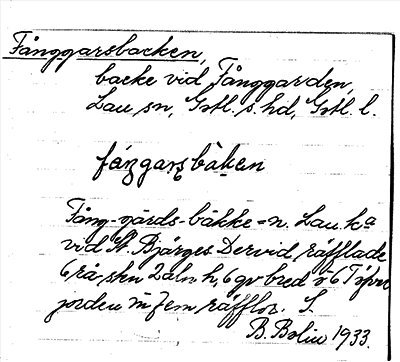 Fånggarsbacken,
backe vid Fånggarden,
Lau sn, Gotl. s. hd, Gotl. l.
fáŋgarsbàken
Fång-gårds-bākke-n. Lau. k<sup>a</sup>
vid St. Bjärges Dervid räfflade
6 rå, sten 2 aln h, 6 qv bred o 6 T öfver
jorden m 7 em räfflor. S.
B. Bolin 1933.